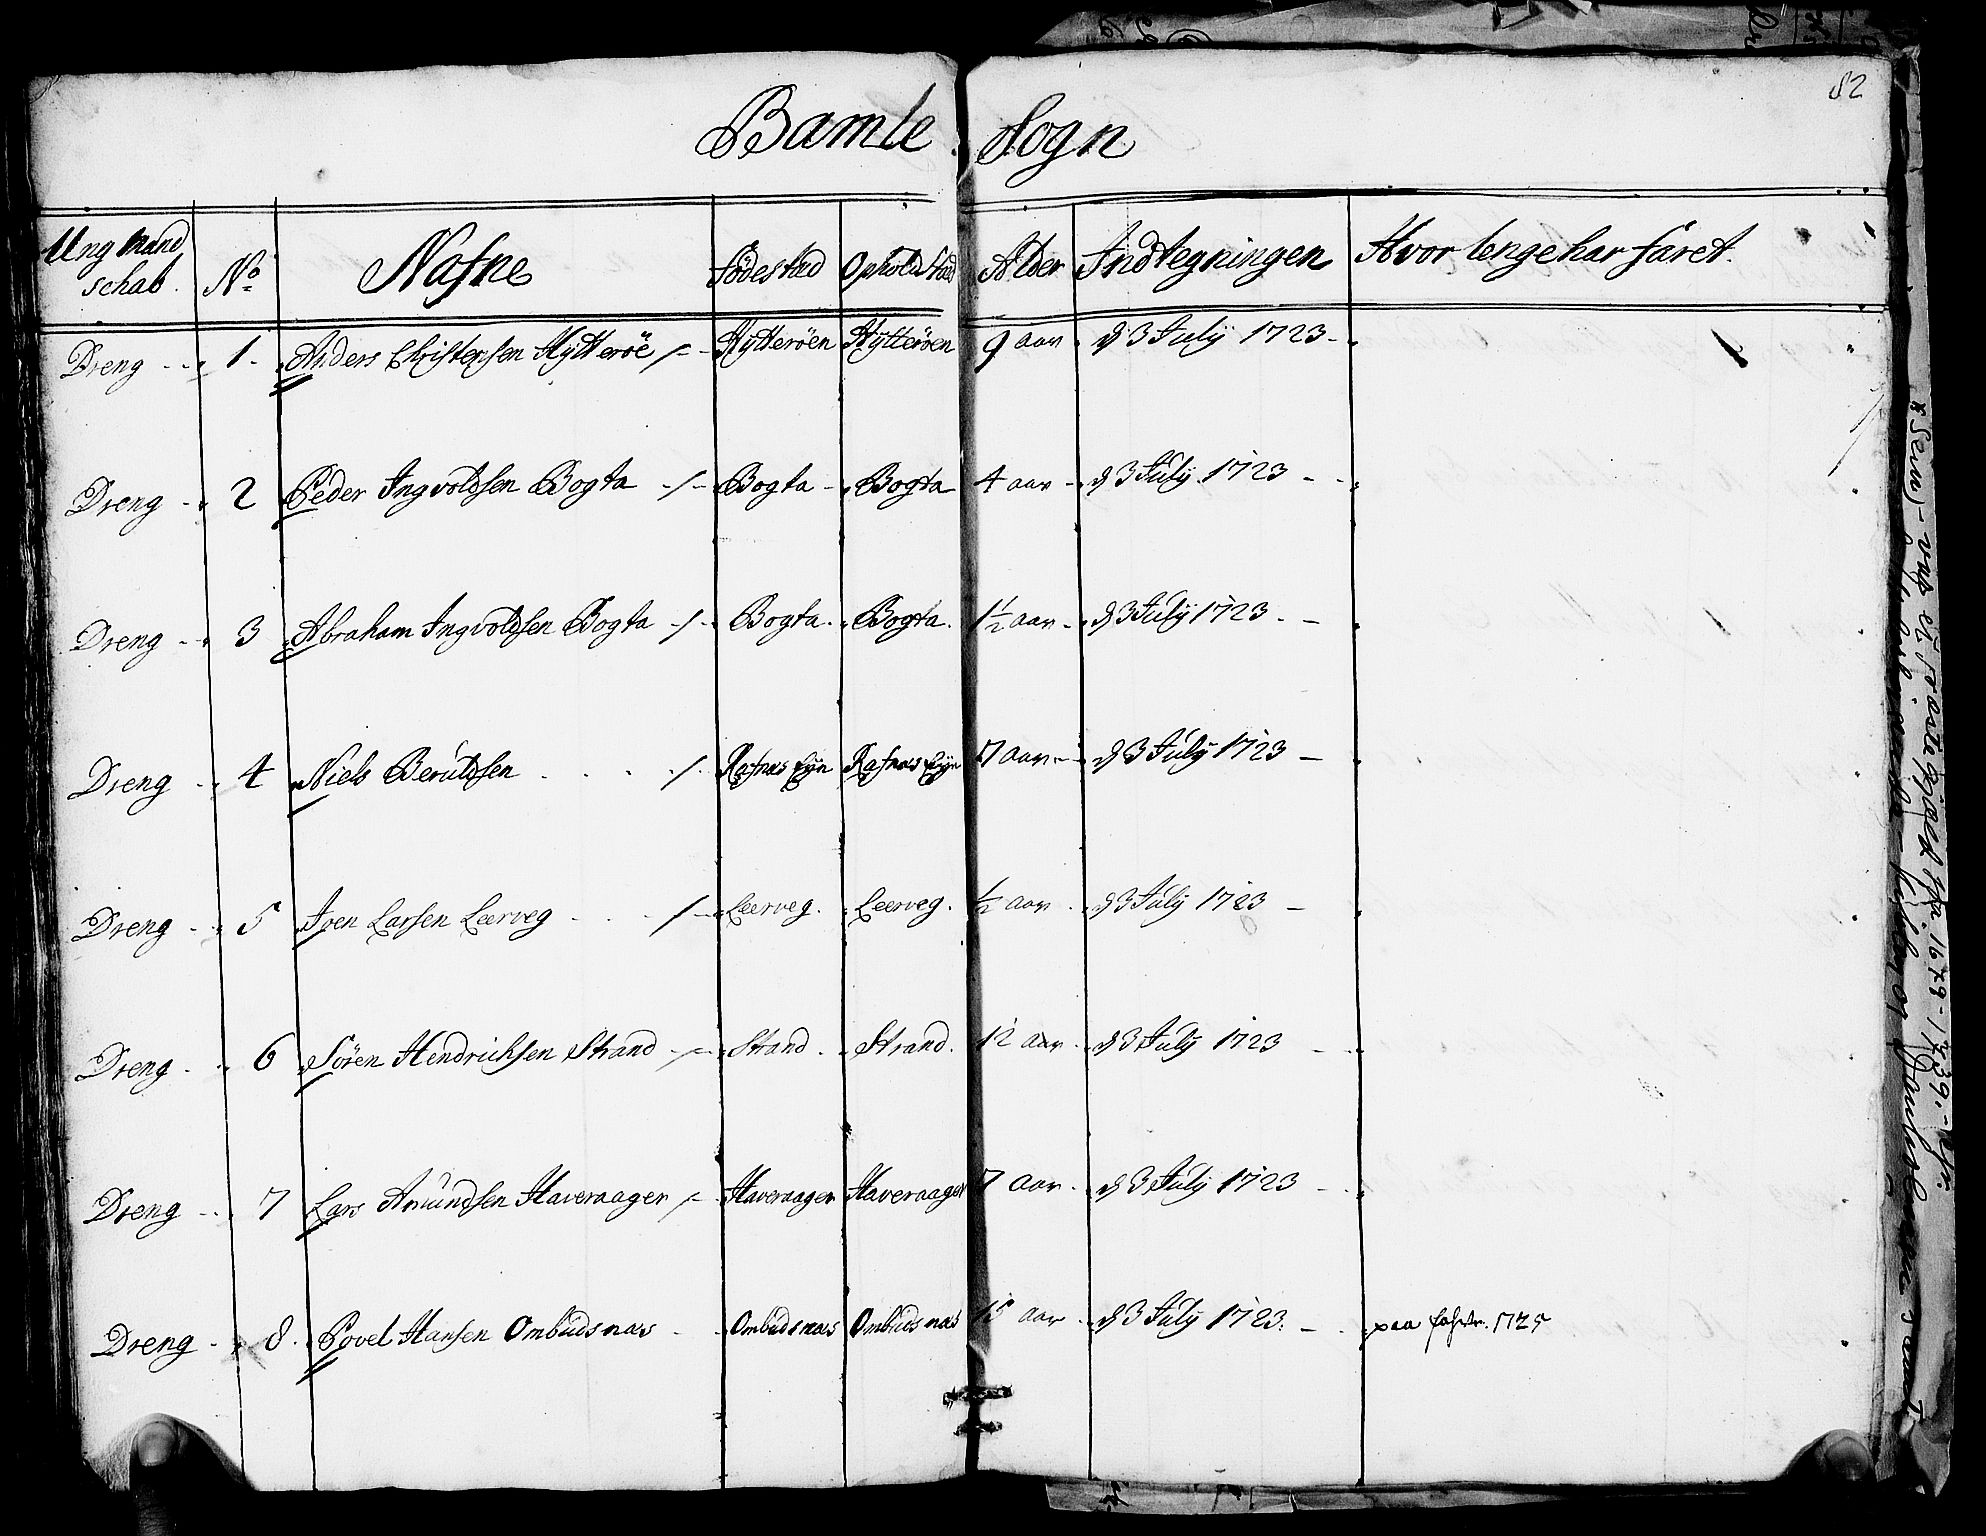 82
Bamle Sogn
Ung Mand schab. No Nafne Födestæd Opholdstæd Alder Indtegningen Hvor lenge har faret.
Dreng 1 Anders Christensen Hytteröe Hytteröen Hytteröen 9 aar d 3 July 1723
Dreng 2 Peder Ingvoldsen Bogta Bogta Bogta 4 aar d 3 July 1723
Dreng 3 Abraham Ingvoldsen Bogta Bogta Bogta 1½ aar d 3 July 1723
Dreng 4 Niels Beruldsen Rafnæs Eyn Rafnæs Eyn 7 aar d 3 July 1723
Dreng 5 Iven Larsen Leerveg Leerveg Leerveg ½ aar d 3 July 1723
Dreng 6 Sören Hendrichsen Strand Stand Strand 12 aar d 3 July 1723
Dreng 7 Lars Amundsen Haveraager Haveraager Haveraager 7 aar d 3 July 1723
Dreng 8 Povel Hansen Ombudsnæs Ombudsnæs Ombudsnæs 15 aar d 3 July 1723 paa 1725